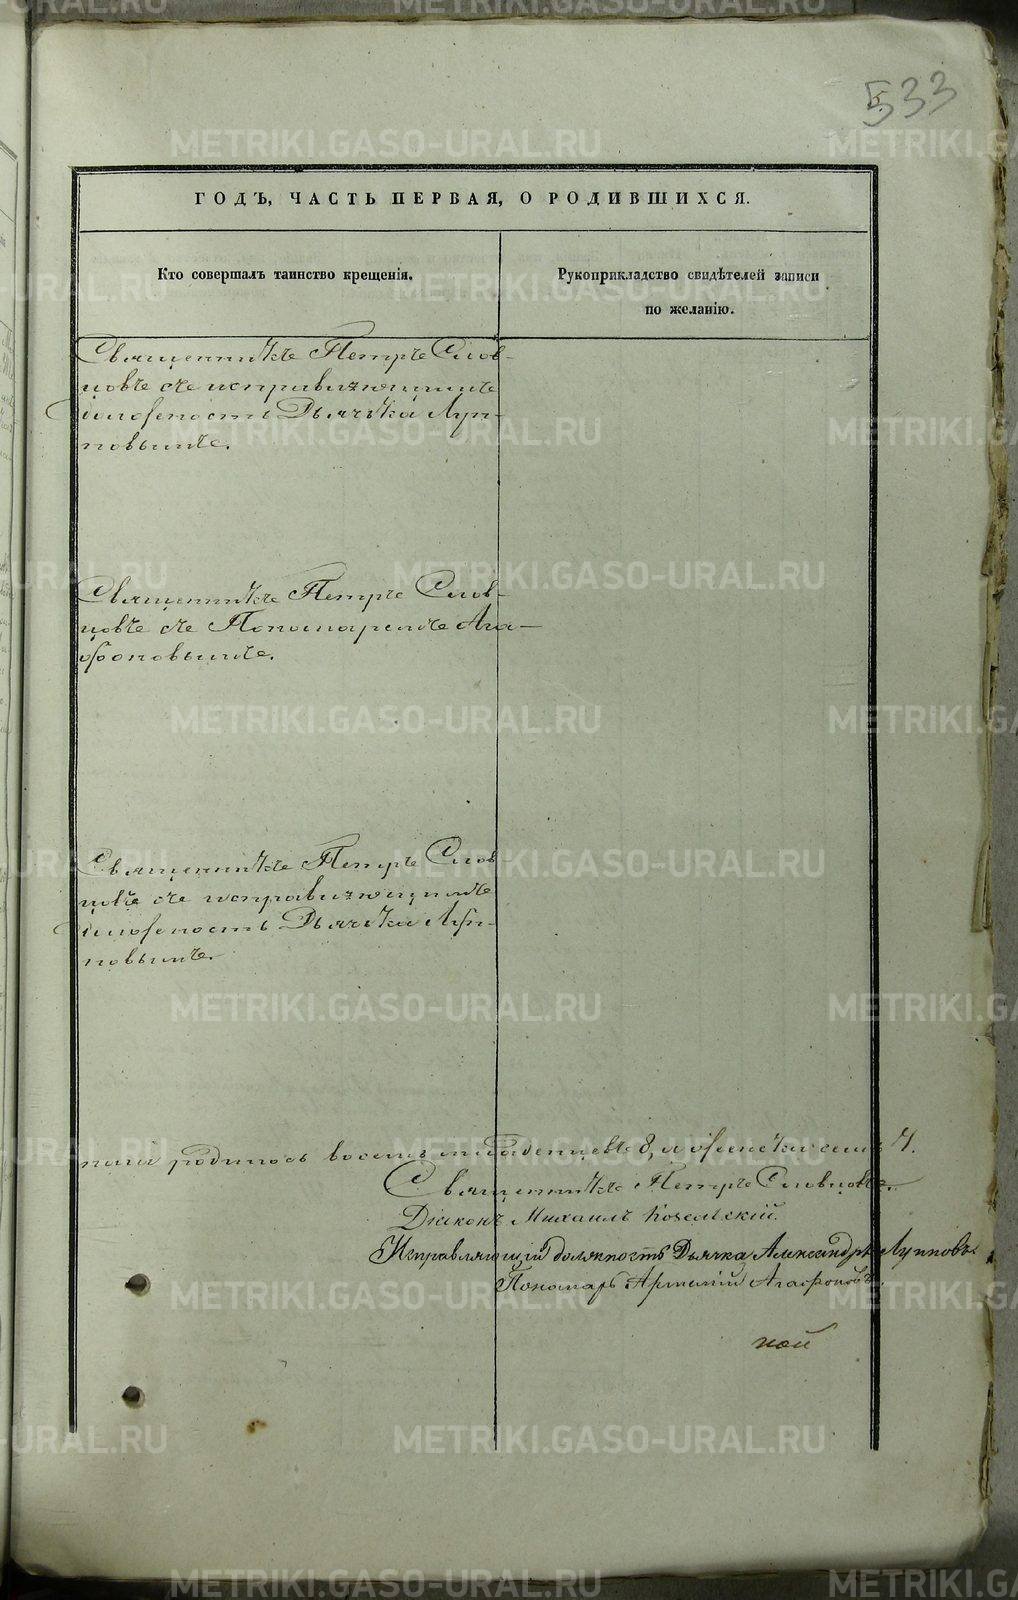 533
ГОДЪ, ЧАСТЬ ПЕРВАЯ, О РОДИВШИХСЯ.
Кто совершалъ таинство крещенія.
Рукоприкладство свидѣтелей записи
по желанію.
Священникъ Петръ Слов-
цовъ съ исправляющимъ
должность Дьячка Луп-
повымъ.
Священникъ Петръ Слов-
цовъ съ Пономаремъ Ага-
фоновымъ.
Священникъ Петръ Слов-
цовъ съ исправляющимъ
должность Дьячка Луп-
повымъ.
родилось восемь младенцевъ 8, женска семь 7.
Священникъ Петръ Словцовъ.
Діаконъ Михаилъ Козельскій.
Исправляющій должность Дьячка Александръ Лупповъ
Пономарь Агафоновъ.
кой
METRIKI.GASO-URAL.RU